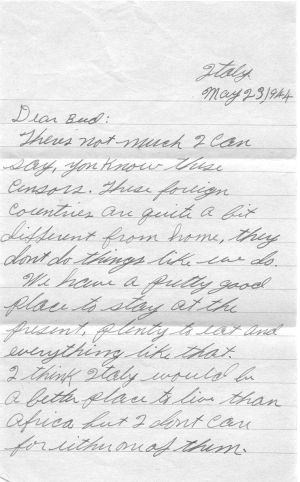 Italy
May 23, 1944
Dear Bud:
Theres not much I can
say, you know these
Censors. These foreign
Countries are quite a bit
different from home, they
dont do things like we do.
We have a pretty good
place to stay at the
present, plenty to eat and
everything like that.
I think Italy would be
a better place to live than
Africa but I dont care
for either one of them.